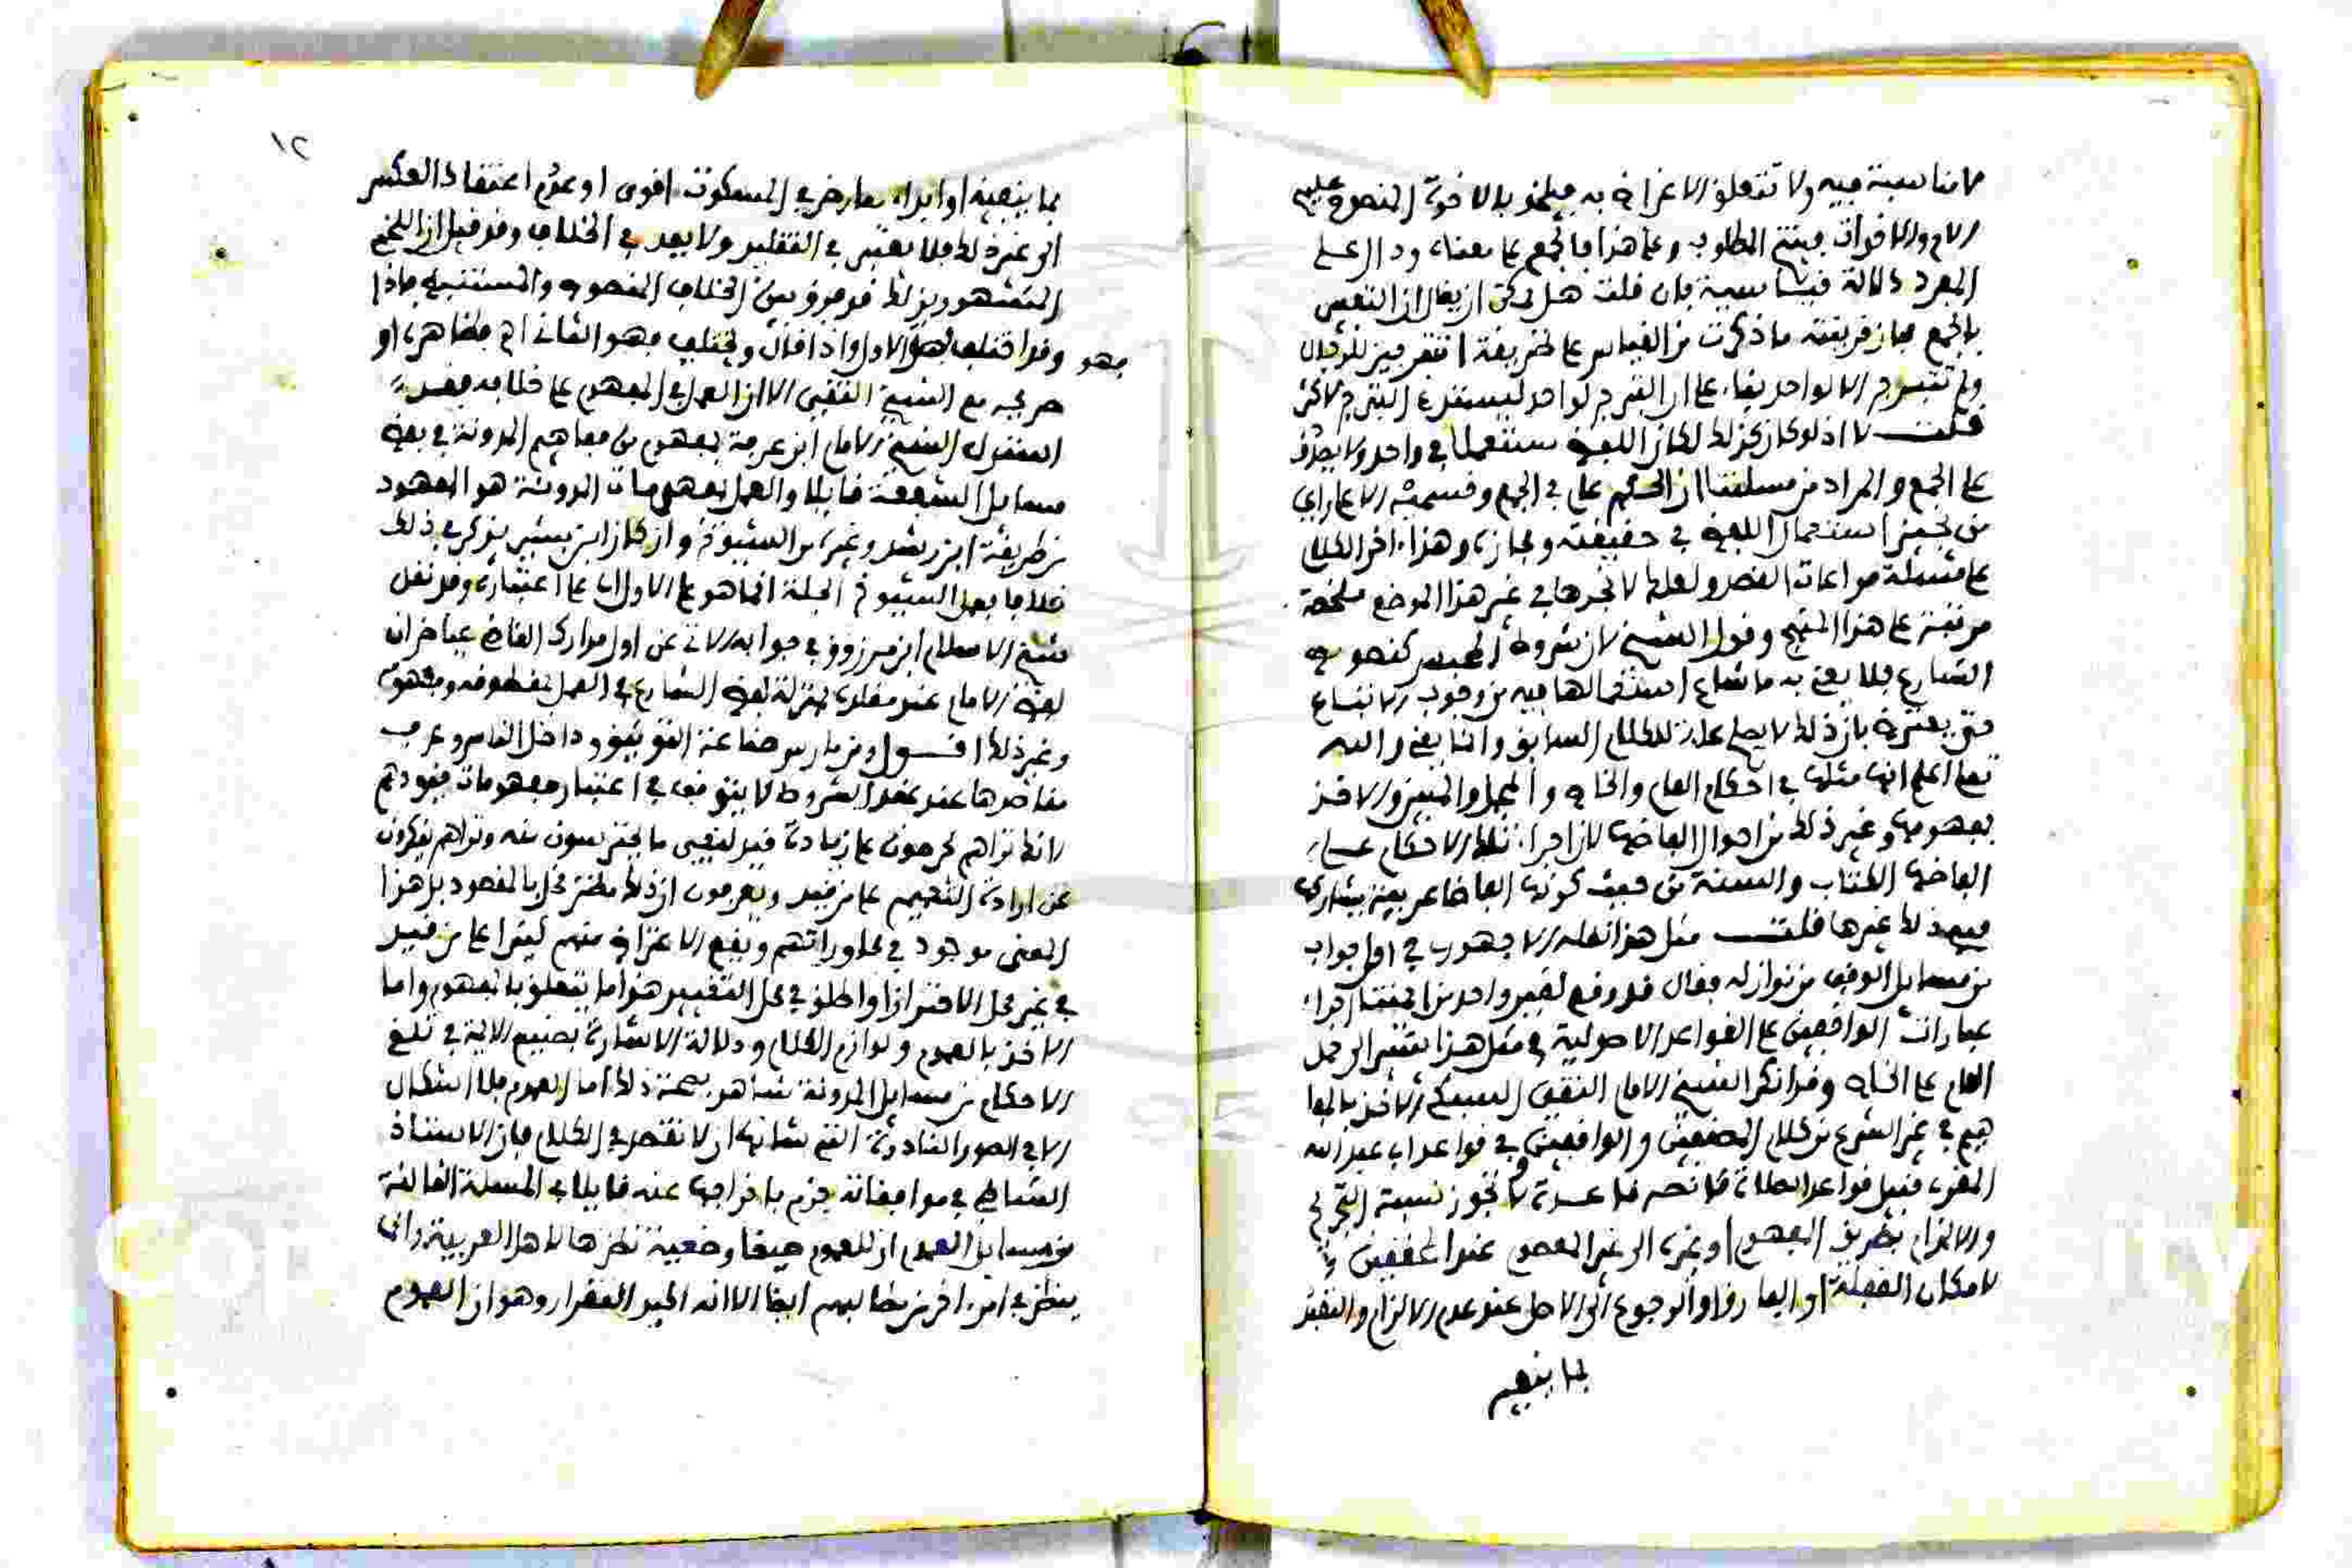 لا مناسبة فيه ولا تتعلق الاغراض به فيلحق بالاخوة المنصوص عليهم
الام والاخوات فينتج المطلوب وعلى هذا فالجمع على معناه ودال على
المفرد دلالة قياسية فان قلت هل يمكن ان يقال ان التعبير
بالجمع مجاز قرينته ما ذكرت من القياس على طريقة
ولم الا لواحد بقاء على ان لواحد
قلت لا اذ لو كان كذلك لكان اللفظ مستعملا في واحد ولا يصدق
على الجمع والمراد من مسئلتنا ان الحكم على في الجمع وقسميه الا على راي
من يجيز استعمال اللفظ في حقيقته ومجازه وهذا اخر الكلام
على مسئلة مراعات القصد ولعلك لا تجدها في غير هذا الموضع ملخصة
مرتبة على هذا المنهج وقول الشيخ لان شروط المحبس كنصوص
الشارع فلا يعني به ما شاع استعمالها فيه من وجوب الاتباع
حتى يعترض بان ذلك لا يصلح علة للكلام السابق وانما يعني والله
تعلى اعلم انها مثلها في احكام العام والخاص والمجمل والمبين والاخذ
بمفهومها وغير ذلك من احوال الفاظها لان اجراء تلك الاحكام على
الفاظ الكتاب والسنة من حيث كونها الفاظا عربية يشاركها
في ذلك غيرها قلت مثل هذا نقله الاجهوري في اول جواب
من مسايل الوقف من نوازله فقال قد وقع لغير واحد من ائمتنا اجراء
عبارات الواقفين على القواعد الاصولية في مثل هذا يشير الى حمل
العام على الخاص وقد انكر الشيخ الامام التقي السبكي الاخذ بالمفا
هيم في غير الشرع من كلام المصنفين والواقفين في قواعد ابي عبد الله
المقري قبيل قواعد الصلاة ما نصه قاعدة لا تجوز نسبة التخريج
والالزام بطريق المفهوم او غيره الى غير المعصوم عند المحققين
لامكان الغفلة او الفارق او الرجوع الى الاصل عند عدم الالزام والتقيد
بما ينفيه
١٢
بما ينفيه او ابداء معارض في المسكوت اقوى او عدم اعتقاد العكس
الى غير ذلك فلا يعتمد في التقليد ولا يعد في الخلاف وقد قيل ان اللخمي
المشهور بذلك قد فرق بين الخلاف المنصوص والمستنبط فاذا
وقد اختلف فهو الاول واذا قال ويختلف فهو الثاني اه فظاهره او
فهو
صريحه مع الشيخ التقي الا ان العمل في المفهوم على خلافه فقد
استدل الشيخ الامام ابن عرفة بمفهوم من مفاهيم المدونة في بعض
مسايل الشفعة قايلا والعمل بمفهومات المدونة هو المعهود
من طريقة ابن رشد وغيره من الشيوخ وان كان ابن بشير يذكر في ذلك
خلافا فعمل الشيوخ في الجملة انما هو على الاول اي على اعتباره وقد نقل
شيخ الاسلام ابن مرزوق في جوابه الاتي عن اول مدارك القاضي عياض ان
لفظ الامام عند مقلده بمنزلة لفظ الشارع في العمل بمنطوقه ومفهومه
وغير ذلك اقول ومن مارس صناعة التوثيق وداخل الناس وعرف
مقاصدها عند عقد الشروط لا يتوقف في اعتبار مفهومات قيودهم
لانك تراهم يحرصون على زيادة قيد لنفي ما يحترسون منه وتراهم ينكرون
عن ارادة التعميم على من قيد ويعرفون ان ذلك مخل بالمقصود بل هذا
المعنى موجود في محاوراتهم ويقع الاعتراض منهم كثيرا على من قيد
في غير محل الاحتراز او اطلق في محل التقييد هذا ما يتعلق بالمفهوم واما
الاخذ بالعموم ولوازم الكلام ودلالة الاشارة فصنيع الائمة في تلقي
الاحكام من مسايل المدونة شاهد بصحة ذلك اما العموم فلا اشكال
الا في الصور النادرة التي شانها ان لا تقصد في الكلام فان الاستاذ
الشاطبي في موافقاته جزم باخراجها عنه قايلا في المسئلة الثالثة
من مسايل العموم ان للعموم صيغا وضعية نظرها لاهل العربية وانما
ينظر في امر اخر من مطالبهم ايضا الا انه اكيد التقرار وهو ان العموم